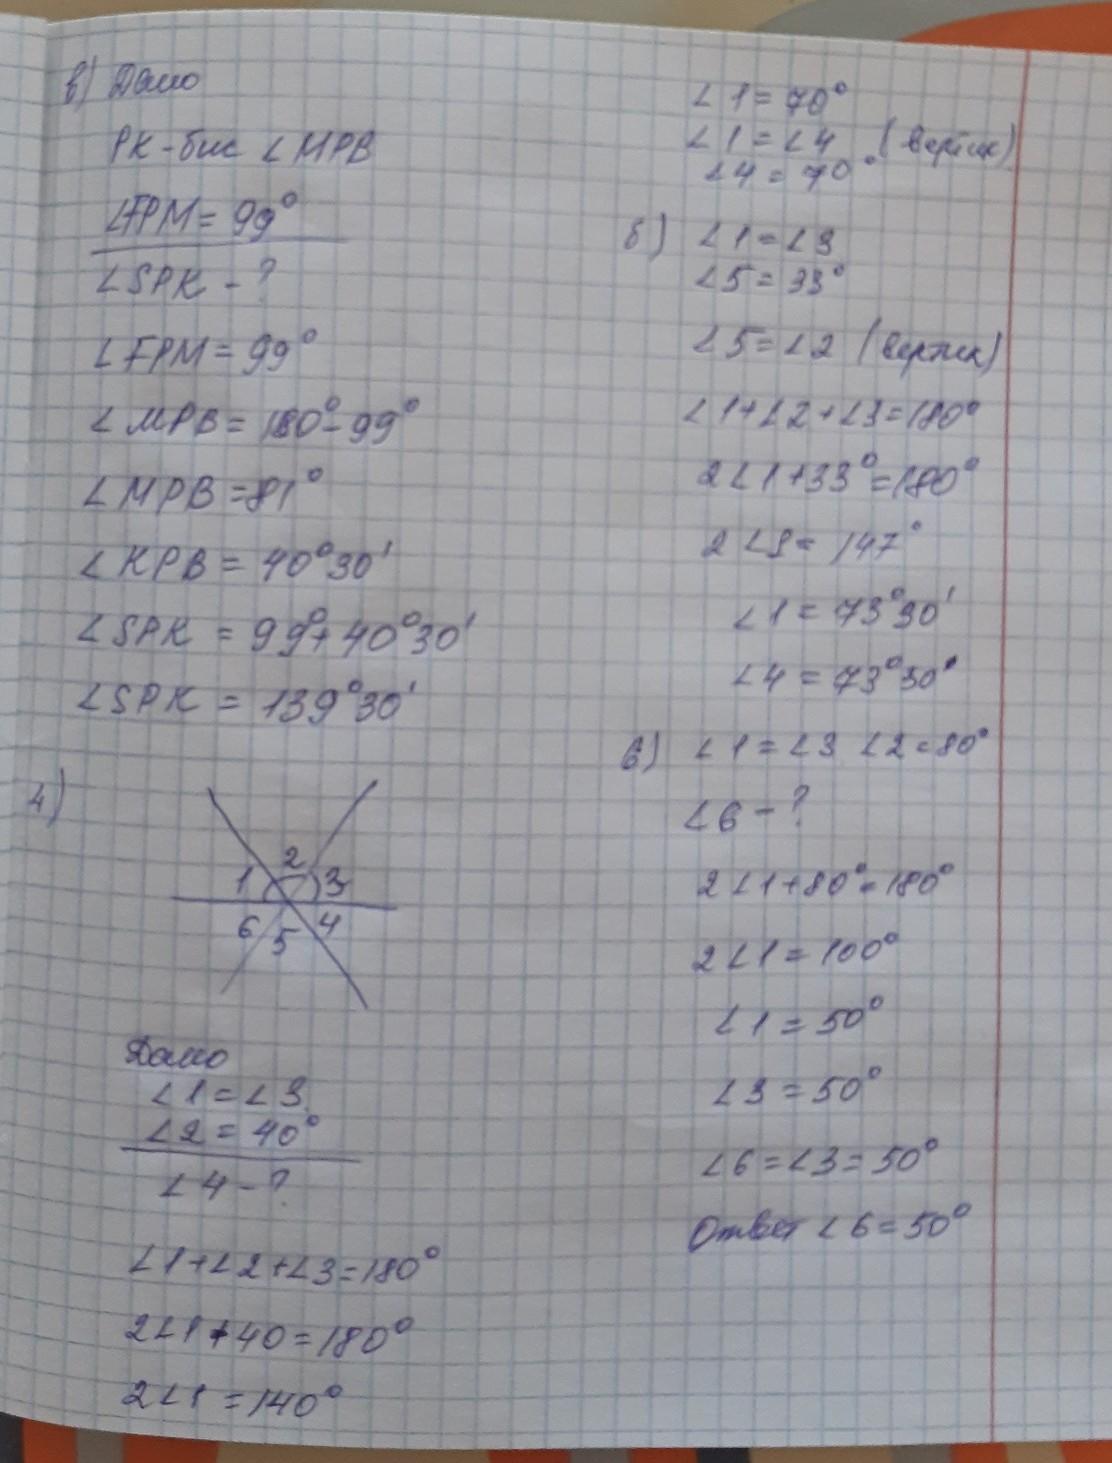 в) Дано
РК-бис ∠МРВ
∠FPM = 99°
∠SPK - ?
∠FPM = 99°
∠MPB = 180° - 99°
∠MPB = 81°
∠KPB = 40°30'
∠SPK = 99° + 40°30'
∠SPK = 139°30'
4)
1 2 3
6 5 4
Дано
∠1 = ∠3
∠2 = 40°
∠4 - ?
∠1 + ∠2 + ∠3 = 180°
2∠1 + 40 = 180°
2∠1 = 140°
∠1 = 70°
∠1 = ∠4 (вертик)
∠4 = 70°
б) ∠1 = ∠3
∠5 = 33°
∠5 = ∠2 (вертик)
∠1 + ∠2 + ∠3 = 180°
2∠1 + 33° = 180°
2∠1 = 147°
∠1 = 73°30'
∠4 = 73°30'
в) ∠1 = ∠3 ∠2 = 80°
∠6 - ?
2∠1 + 80° = 180°
2∠1 = 100°
∠1 = 50°
∠3 = 50°
∠6 = ∠3 = 50°
Ответ ∠6 = 50°